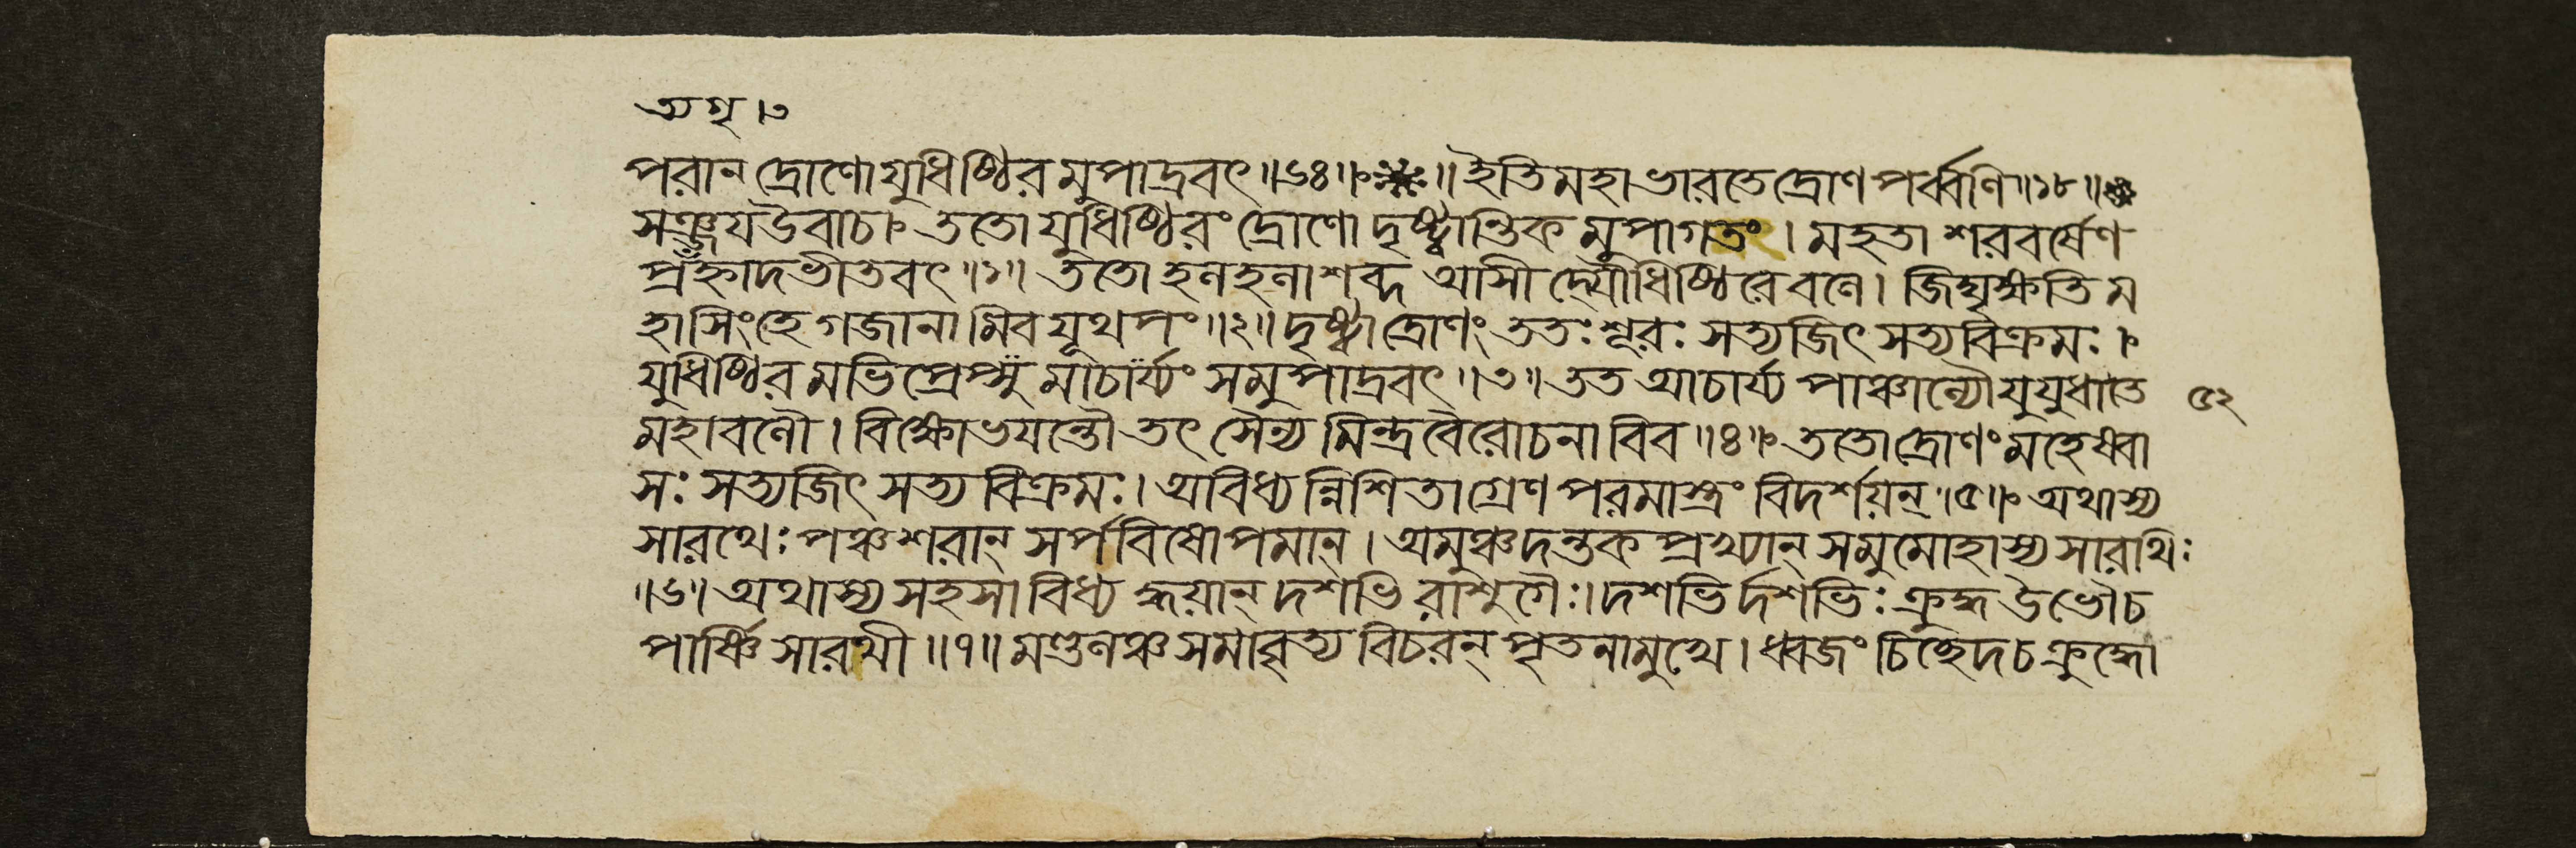 অগ্ৰ ।৩
পরান দ্রোণো যুধিষ্ঠিরমুপাদ্রবৎ ॥৬৪॥ ॥ ইতি মহাভারতে দ্রোণপর্ব্বণি ॥১৮॥
সঞ্জয উবাচ । ততো যুধিষ্ঠিরং দ্রোণো দৃষ্ট্বান্তিকমুপাগতং । মহতা শরবর্ষেণ
প্রঁহ্নাদভীতবৎ ॥১॥ ততো হনহনাশব্দ আসীদ্যৌধিষ্ঠিরে বণে । জিঘৃক্ষতি ম
হাসিংহে গজানামিব যূথপং ॥২॥ দৃষ্ট্বা দ্রোণং ততঃ শূরঃ সত্যজিৎ সত্যবিক্রমঃ ।
যুধিষ্ঠিরমভিপ্রেপ্সুমাচার্য্যং সমুপাদ্রবৎ ॥৩॥ তত আচার্য্য পাঞ্চান্যৌ যুযুধাতে ৫২
মহাবণৌ । বিক্ষোভযন্তৌ তৎ সৈন্যমিন্দ্রবৈরোচনাবিব ॥৪॥ ততো দ্রোণং মহেষ্বা
সঃ সত্যজিৎ সত্যবিক্রমঃ । অবিধ্যন্নিশিতাগ্রেণ পরমাস্ত্রং বিদর্শয়ন্ ॥৫॥ অথাস্য
সারথেঃ পঞ্চশরান্ সর্পবিষোপমান্ । অমুঞ্চদন্তকপ্রখ্যান্ সমুমোহাস্য সারথিঃ
॥৬॥ অথাস্য সহসাবিধ্যদ্ধয়ান্ দশভিরাশুগৈঃ । দশভির্দশভিঃ ক্রুদ্ধ উভৌ চ
পার্ষ্ণিসারথী ॥৭॥ মণ্ডনঞ্চ সমাবৃত্য বিচরন্ পৃতনামুখে । ধ্বজং চিচ্ছেদ চ ক্রুদ্ধো